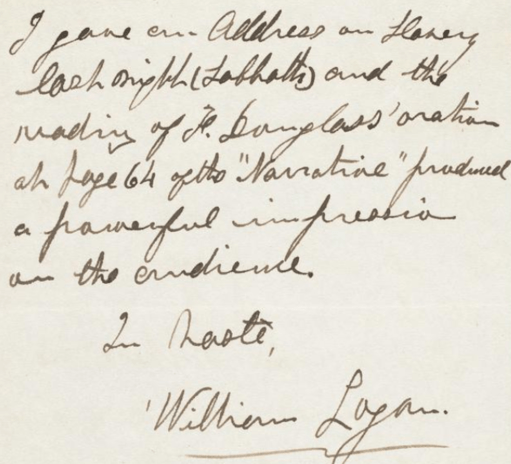 I gave an Address on Slavery
last night (Sabbath) and the
reading of F. Douglass' oration
at page 64 of the "Narrative" produced
a powerful impression
on the audience.
In haste,
William Logan.